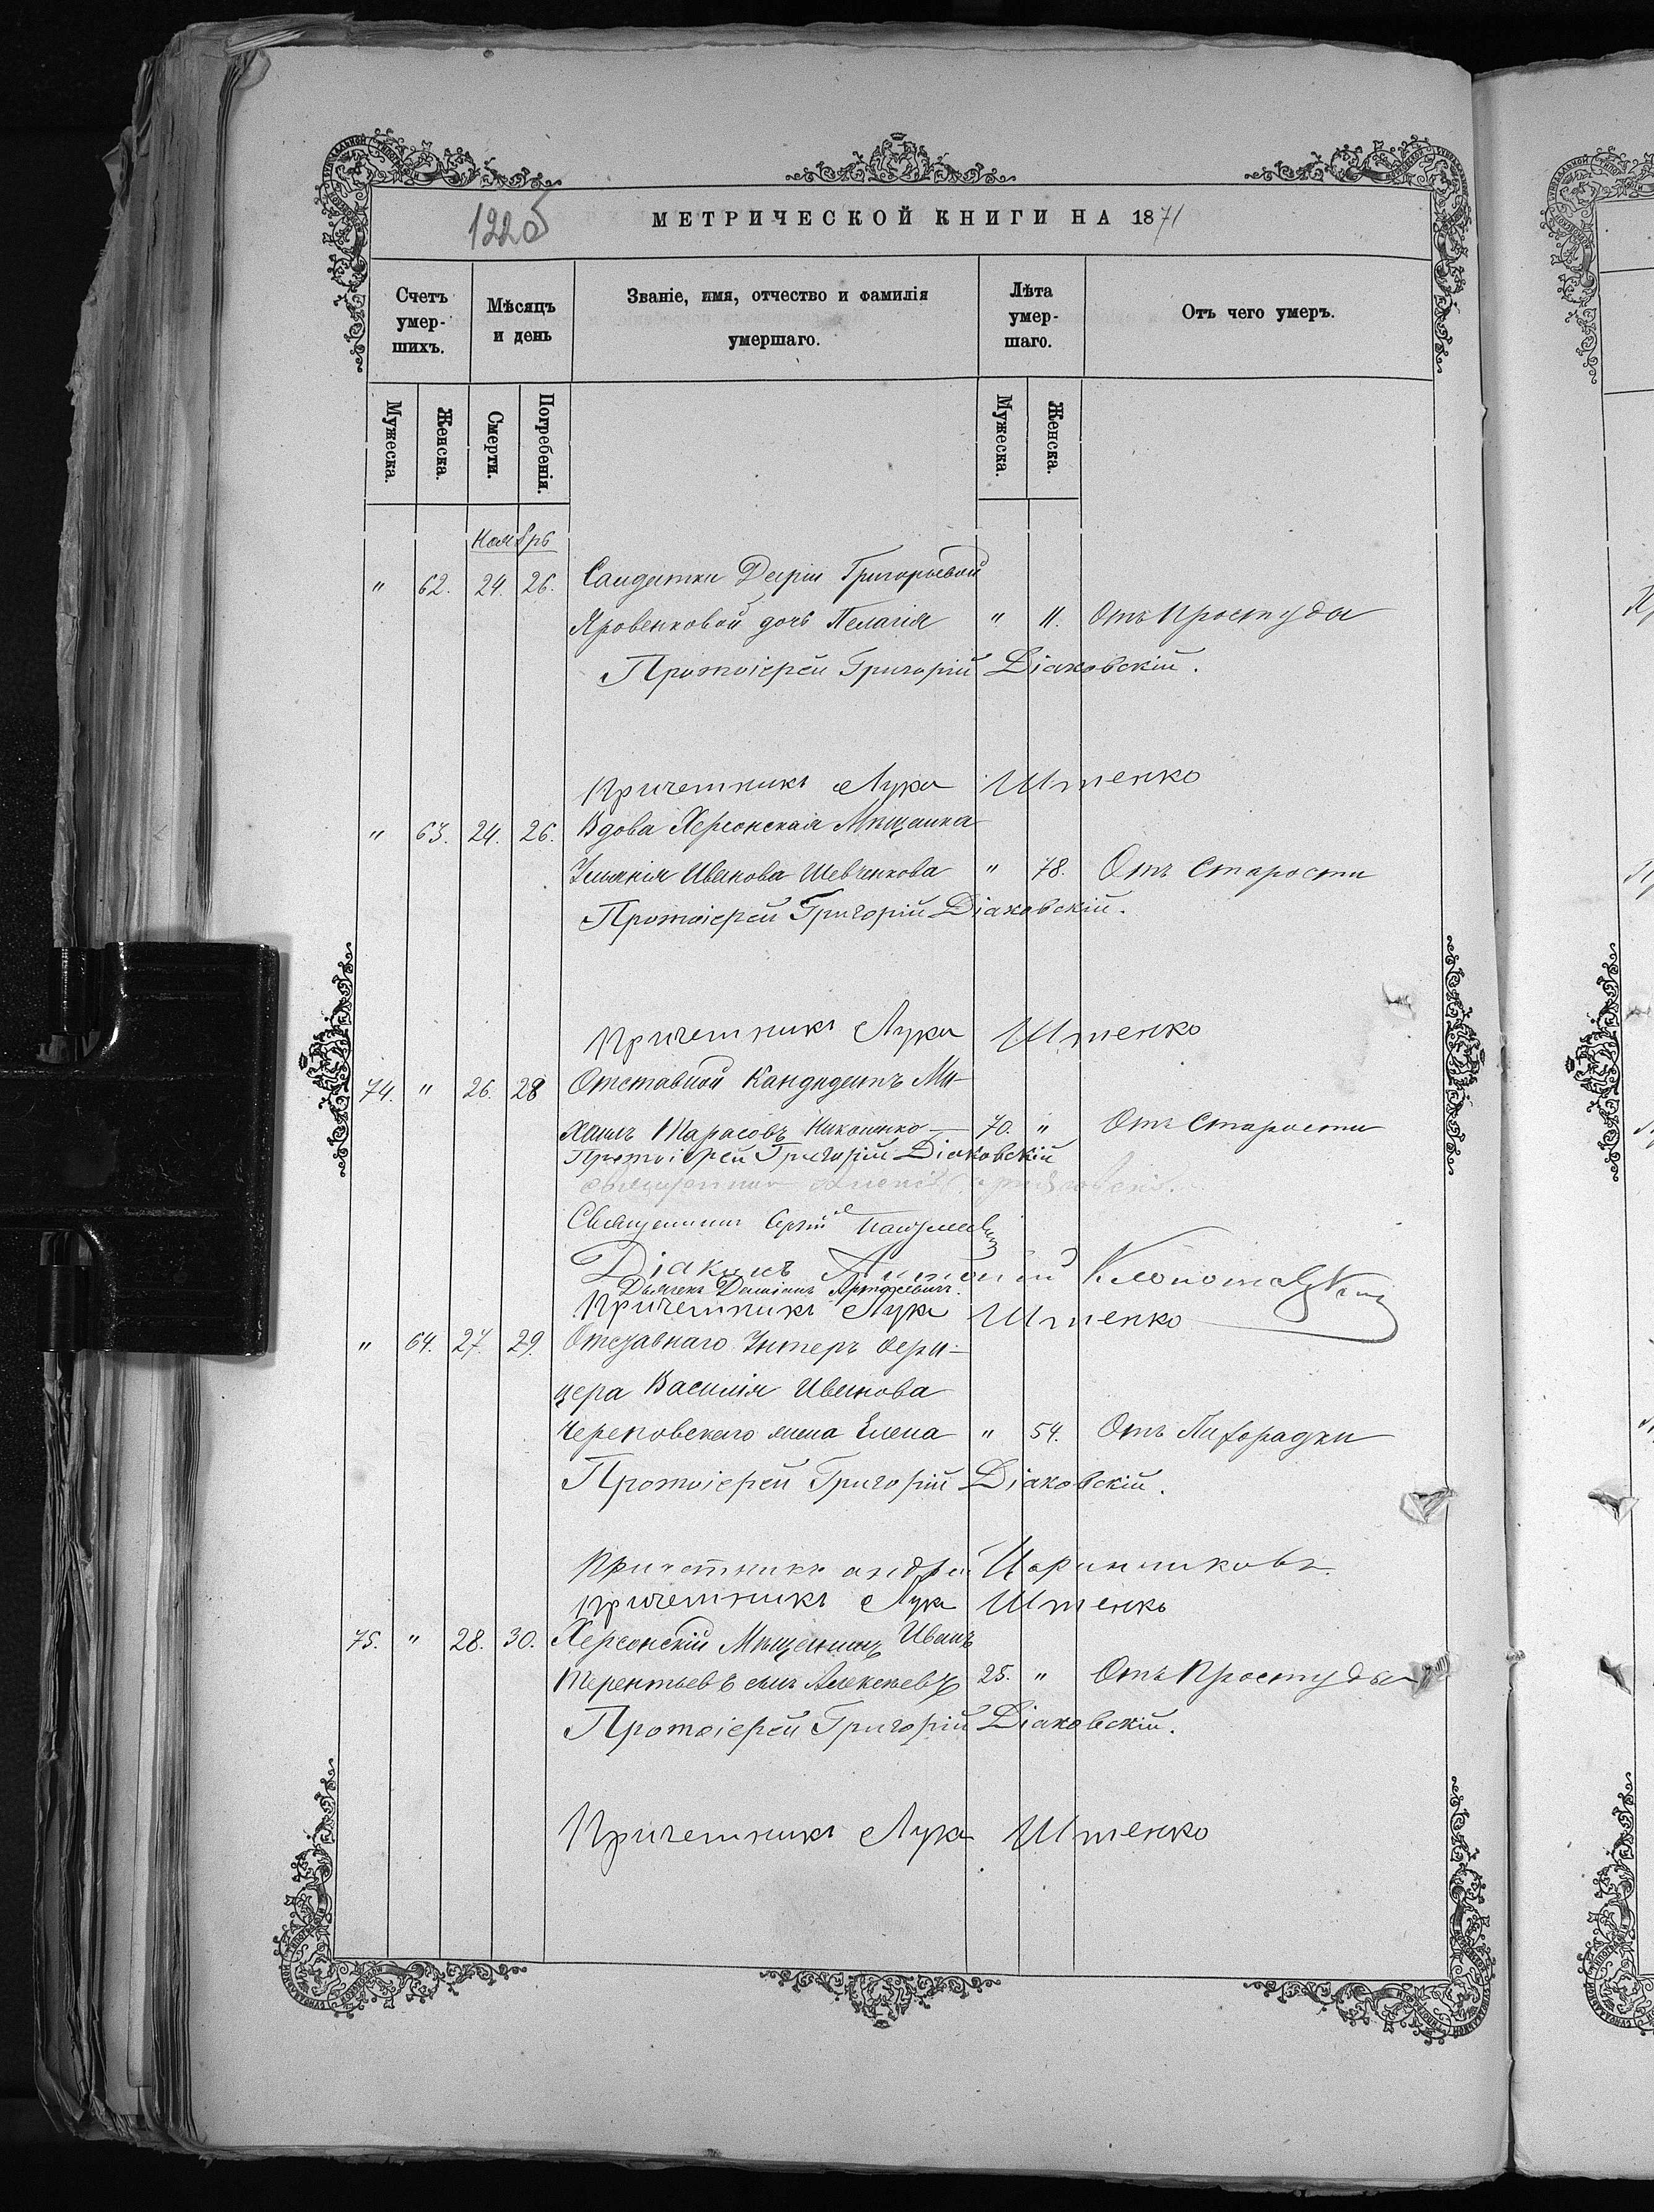 122об
МЕТРИЧЕСКОЙ КНИГИ НА 1871
Счетъ умер-шихъ.
Мѣсяцъ и день
Званіе, имя, отчество и фамилія умершаго.
Лѣта умер-шаго.
Отъ чего умеръ.
Мужеска.
Женска.
Смерти.
Погребенія.
Мужеска.
Женска.
Ноябрь
" 62. 24. 26. Солдатки Дарiи Григорьевой
Яровенковой дочь Пелагія " 11. Отъ простуды
Протоіерей Григорій Діаковскій.
Причетникъ Лука Итенко
" 63. 24. 26. Вдова Херсонская Мѣщанка
Ульянія Иванова Шевченкова " 78. Отъ Старости
Протоіерей Григорій Діаковскій.
Причетникъ Лука Итенко
74. " 26. 28 Отставной Кандидатъ Ми-
хаилъ Тарасовъ 70. " Отъ Старости
Протоіерей Григорій Діаковскій
Священникъ Сергій
Діаконъ Антоній
Дьячекъ
Причетникъ Лука Итенко
" 64. 27. 29. Отставнаго Унтеръ Офи-
цера Василія Иванова
Череповскаго жена Елена " 54. Отъ Лихорадки
Протоіерей Григорій Діаковскій.
Причетникъ Андрей
Причетникъ Лука Итенко
75. " 28. 30. Херсонскій Мѣщанинъ Иванъ
Терентьевъ сынъ Алексѣевъ 25. " Отъ простуды
Протоіерей Григорій Діаковскій.
Причетникъ Лука Итенко